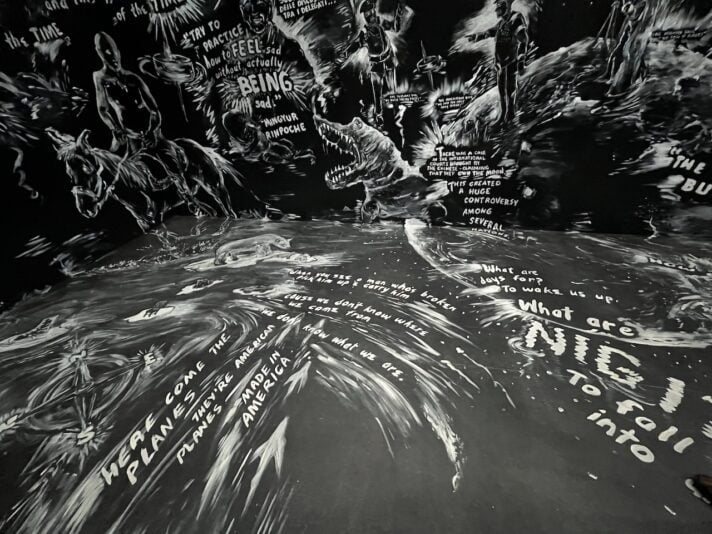 of the TIME
the TIME
"TRY TO
PRACTICE
how to FEEL sad
without actually
BEING
sad."
"MINGYUR
RINPOCHE
TRA I DELEGATI...
THERE WAS A CASE
IN THE INTERNATIONAL
COURTS BROUGHT BY
THE CHINESE - CLAIMING
THAT THEY OWN THE MOON.
THIS CREATED
A HUGE
CONTROVERSY
AMONG
SEVERAL
THE
BU
When you see a man who's broken
pick him up & carry him
cause we don't know where
we come from
We don't know what we are.
What are
boys for?
To wake us up.
What are
To fall
into
HERE COME THE
PLANES
THEY'RE AMERICAN
PLANES
MADE IN
AMERICA
E
S